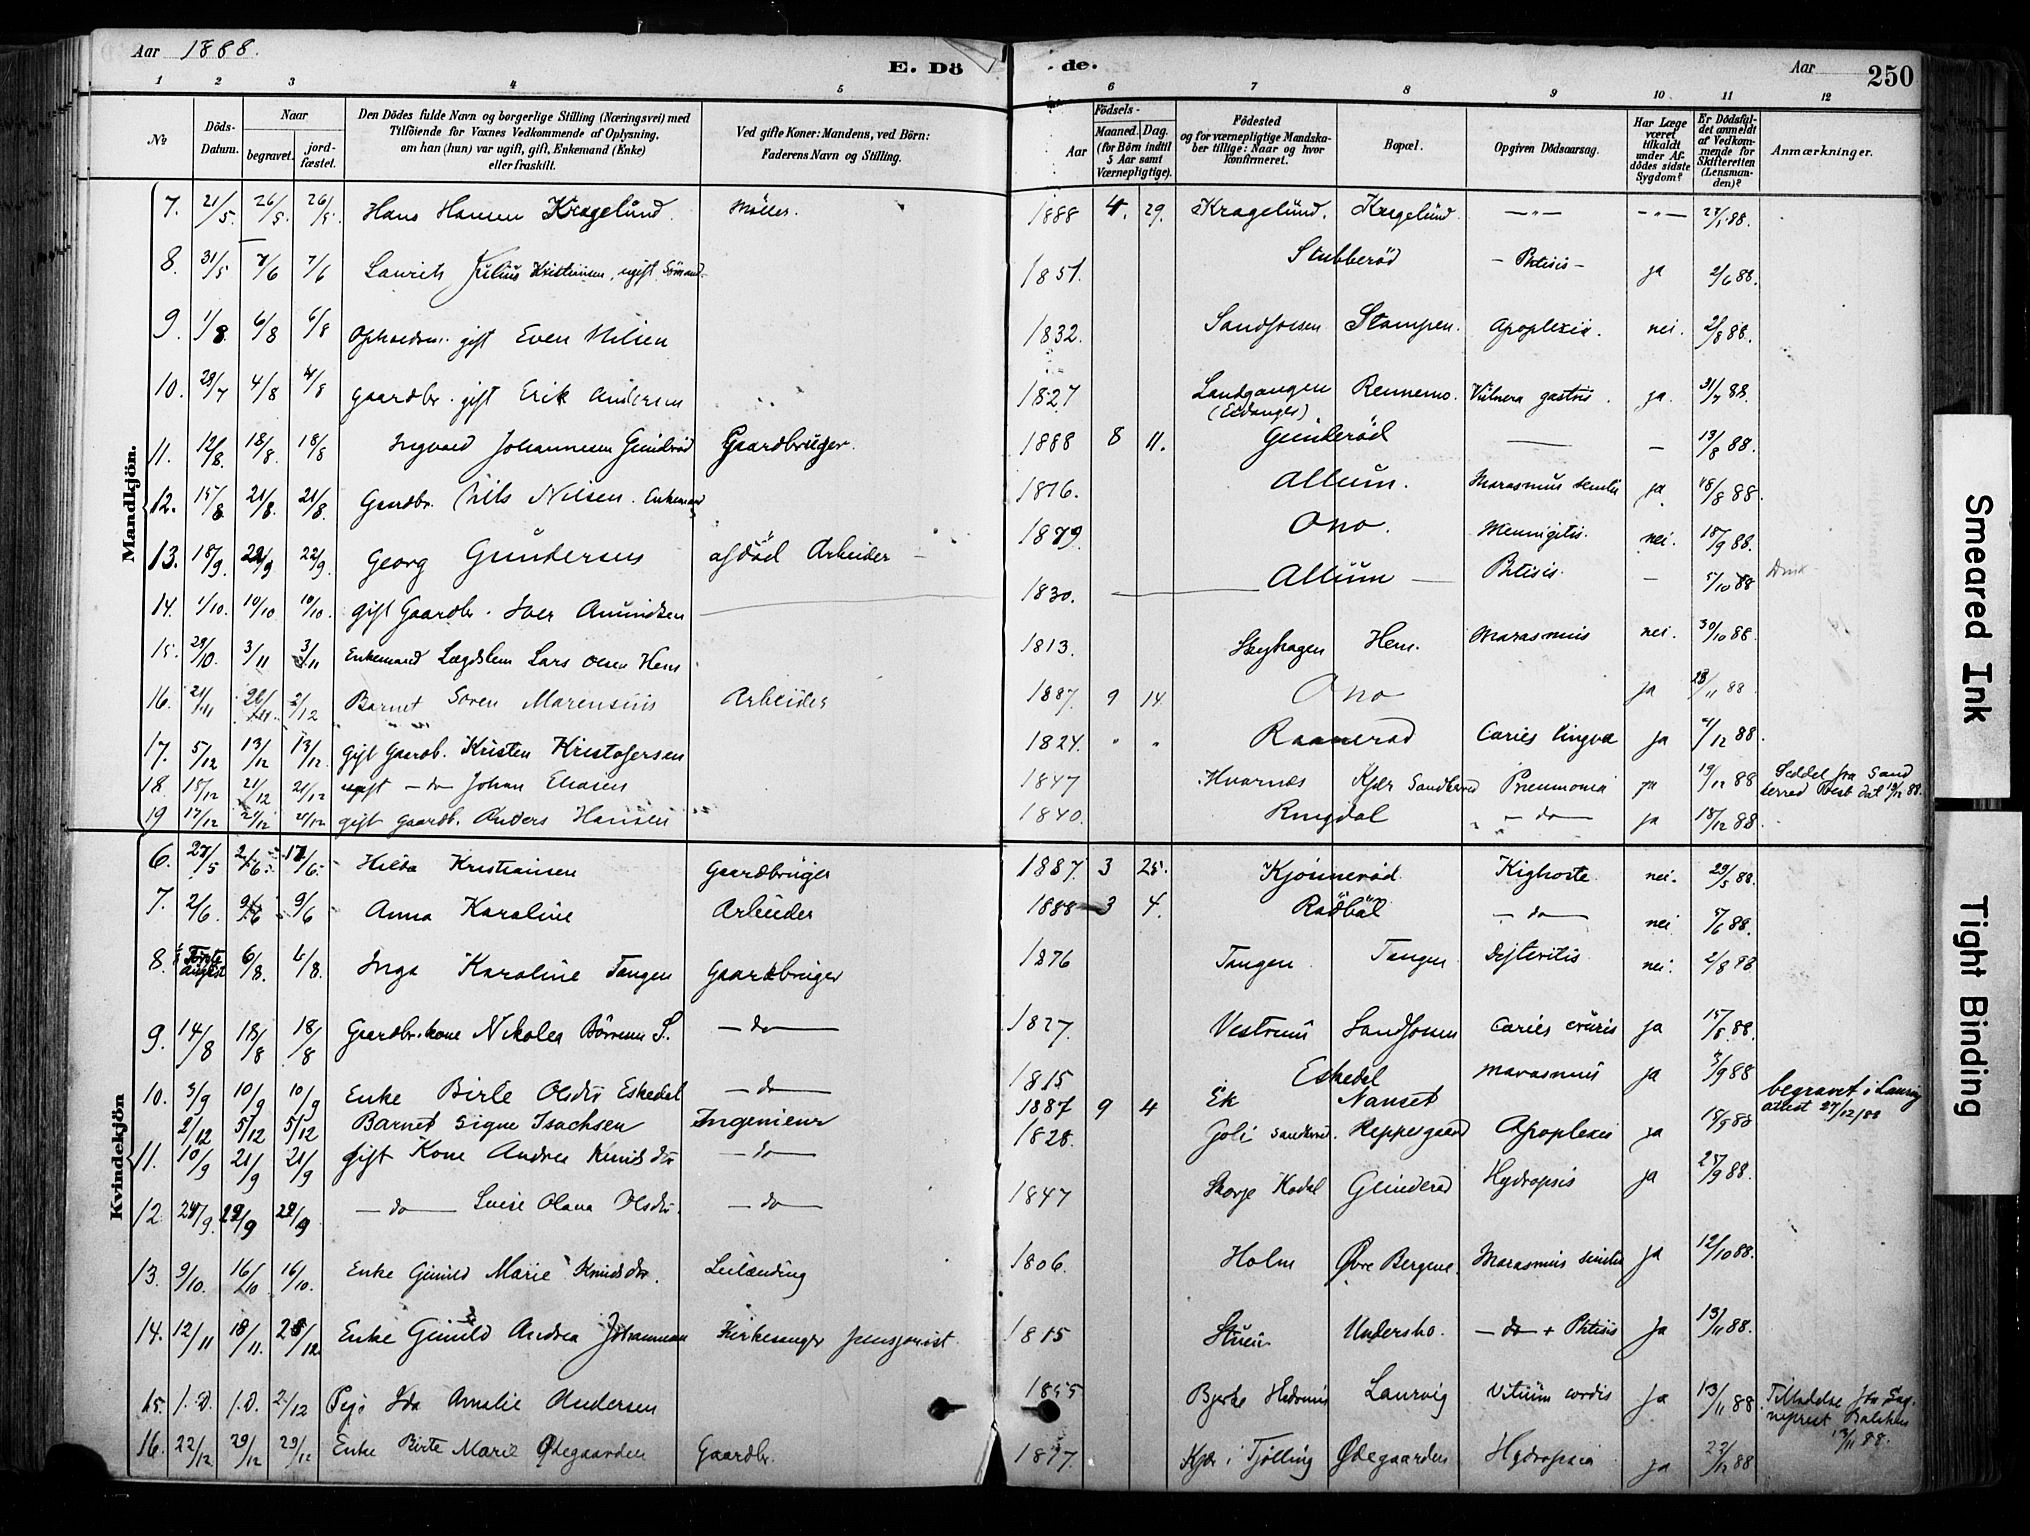 Aar 1888.
E. Dö de.
Aar
250
1 2 3 4 5 6 7 8 9 10 11 12
No
Döds-Datum.
Naar
begravet. jordfæstet.
Den Dödes fulde Navn og borgerlige Stilling (Næringsvei) med
Tilföiende for Voxnes Vedkommende af Oplysning,
om han (hun) var ugift, gift, Enkemand (Enke)
eller fraskilt.
Ved gifte Koner: Mandens, ved Börn:
Faderens Navn og Stilling.
Födsels-
Aar
Maaned. Dag.
(for Börn indtil
5 Aar samt
Værnepligtige).
Födested
og for værnepligtige Mandskaber tillige: Naar og hvor
konfirmeret.
Bopæl.
Opgiven Dödsaarsag.
Har Læge
været
tilkaldt
under Afdödes sidste
Sygdom?
Er Dödsfaldet anmeldt
af Vedkommende for
Skifteretten
(Lensmanden)?
Anmærkninger.
Mandkjön.
7. 21/5 26/5 26/5 Hans Hansen Kragelund. Möller. 1888 4. 29. Kragelund. Kragelund. —"— —"—
8. 31/5 7/6 7/6 Laurits Julius Kristiansen, ugift Sömand 1851. Stubberöd — Phtisis — ja 2/6 88.
9. 1/8 6/8 6/8 gift Even Nilsen 1832. Stampen. Apoplexia. nei. 2/8 88.
10. 28/7 4/8 4/8 Gaardbr. gift Erik Andersen 1827 Landgangen (Eidanger) Rennemo. Vulnera gastris. ja. 31/7 88.
11. 12/8. 18/8. 18/8 Ingvald Johannesen Gunderöd Gaardbruger. 1888 8 11. Gunderöd — — 13/8 88.
12. 15/8 21/8. 21/8. Gaardbr. Nils Nilsen. Enkemand 1816. Allum. Marasmus senilis ja 18/8 88.
13. 18/9. 22/9 22/9. Georg Gundersen afdöd Arbeider 1879. Ono. Meningitis. nei. 18/9 88.
14. 1/10. 10/10 10/10. gift Gaardbr. Iver Amundsen 1830. Allum — Phtisis. — 5/10 88
15. 28/10. 3/11 3/11 Enkemand Lægdslem Lars Olsen Hem 1813. Hem. Marasmus nei. 30/10 88.
16. 21/11 26/11. 2/12 Barnet Soren Marensius Arbeider 1887. 9 14 Ono ja 23/11 88
17. 5/12 13/12 13/12. gift Gaardb. Kristen Kristofersen 1824. " " Raanerod Caries lingva ja 7/12 88.
18. 15/12 21/12 21/12 ugift — do — Johan Eliasen 1847 Kvarnes Kjær Sandherred Pneumonia ja 19/12 88 Seddel fra Sandherred Prest dat 19/12 88.
19 17/12 21/12 21/12 gift Gaardb. Anders Hansen 1840. Ringdal " — do — ja 18/12 88.
Kvindekjön
6. 27/5 Hilda Kristiansen Gaardbruger 1887. 3 25. Kjönneröd. Kighoste. nei. 29/5 88.
7. 2/6. 9/6 9/6 Anna Karoline Arbeider 1888 3 4. Rödböl — do — nei 5/6 88.
8. Förste August 6/8. 6/8. Inga Karoline Tangen Gaardbruger 1876 Tangen. Tangen Difteritis nei. 2/8 88
9. 14/8 18/8 18/8 Gaardbr.kone Nikolea Börresen S. — do — 1827. Vestrum Caries cruris ja 15/8. 88.
10. 3/9 10/9 10/9 Enke Birte Olsdtr Eskedal — do — 1815 Eskedal Marasmus ja 3/9 88
2/12 5/12 5/12 Barnet Signe Isachsen Ingenieur 1887 9 4 Ek Nanset begravet i Laurvig attest 27/12 88
11. 10/9 21/9 21/9 gift Kone Andrea Knudsdtr — do — 1828. Joli Sandherred. Reppesgaard Apoplexis ja 18/9 88
12. 24/9. 29/9 29/9 — do — Lovise Olava Olsdtr. — do — 1847 Skorge Kodal Gunderod Hydropsis ja 25/9 88.
13. 9/10. 16/10 16/10. Enke Gunild Marie Knudsdtr. Leilænding 1806. Holm Övre Bergene. Marasmus senilis ja 12/10 88.
14. 12/11 18/11. 2/12 Enke Gunild Andrea Johannesen Kirkesanger pensjonist. 1815 Undersbo. — do — + Phtisis ja 13/11 88.
15. 1. D. 1. D. 2/12 Pige Ida Amalie Andersen 1855 Bjerke Hedrum Laurvig Vitium cordis ja 13/11 88 Tilladelse fra Sogneprest Balchen 13/11 88.
16. 22/12 29/12 29/12 Enke Birte Marie Ödegaarden Gaardbr. 1817. Kjær i Tjölling Ödegaarden Hydropsia ja 22/12 88
Smeared Ink
Tight Binding